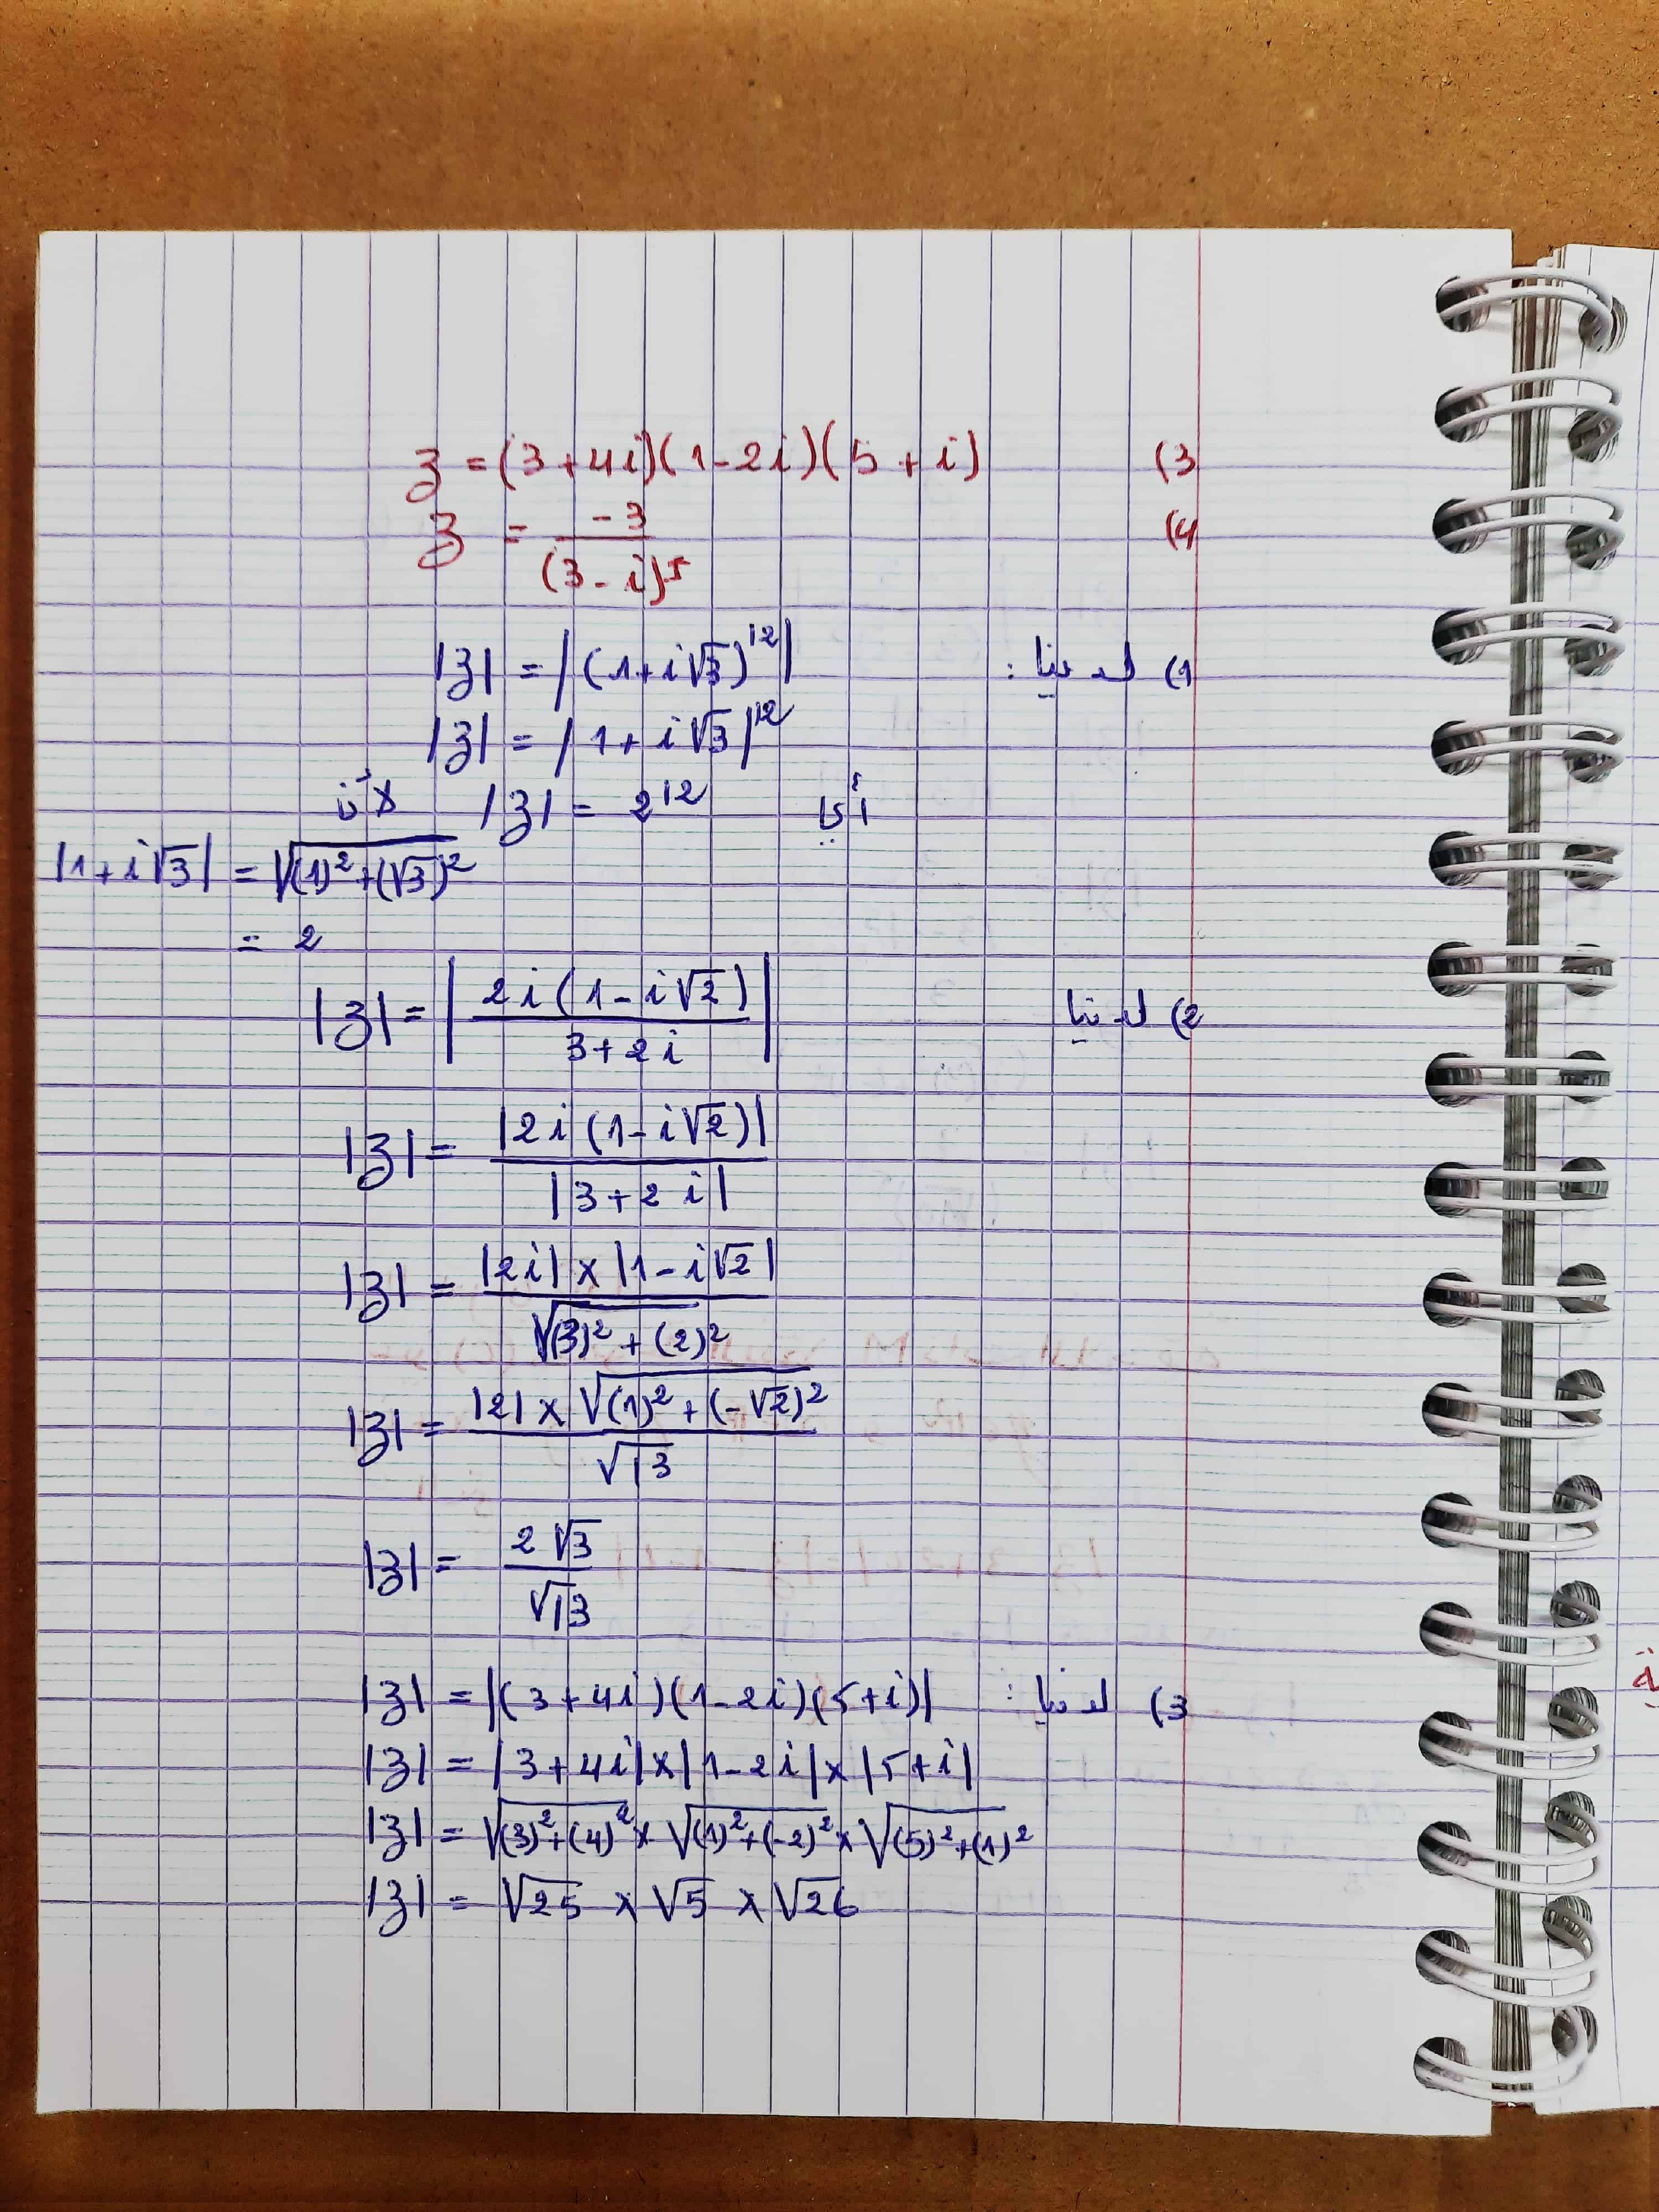 3) z = (3+4i)(1-2i)(5+i)
4) z = -3 / (3-i)⁵
1) لدينا : |z| = |(1+i√3)¹²|
|z| = |1+i√3|¹²
أي |z| = 2¹² لأن
|1+i√3| = √((1)²+(√3)²)
= 2
2) لدينا |z| = |2i(1-i√2) / 3+2i|
|z| = |2i(1-i√2)| / |3+2i|
|z| = |2i| × |1-i√2| / √((3)²+(2)²)
|z| = |2| × √((1)²+(-√2)²) / √13
|z| = 2√3 / √13
3) لدينا : |z| = |(3+4i)(1-2i)(5+i)|
|z| = |3+4i| × |1-2i| × |5+i|
|z| = √((3)²+(4)²) × √((1)²+(-2)²) × √((5)²+(1)²)
|z| = √25 × √5 × √26